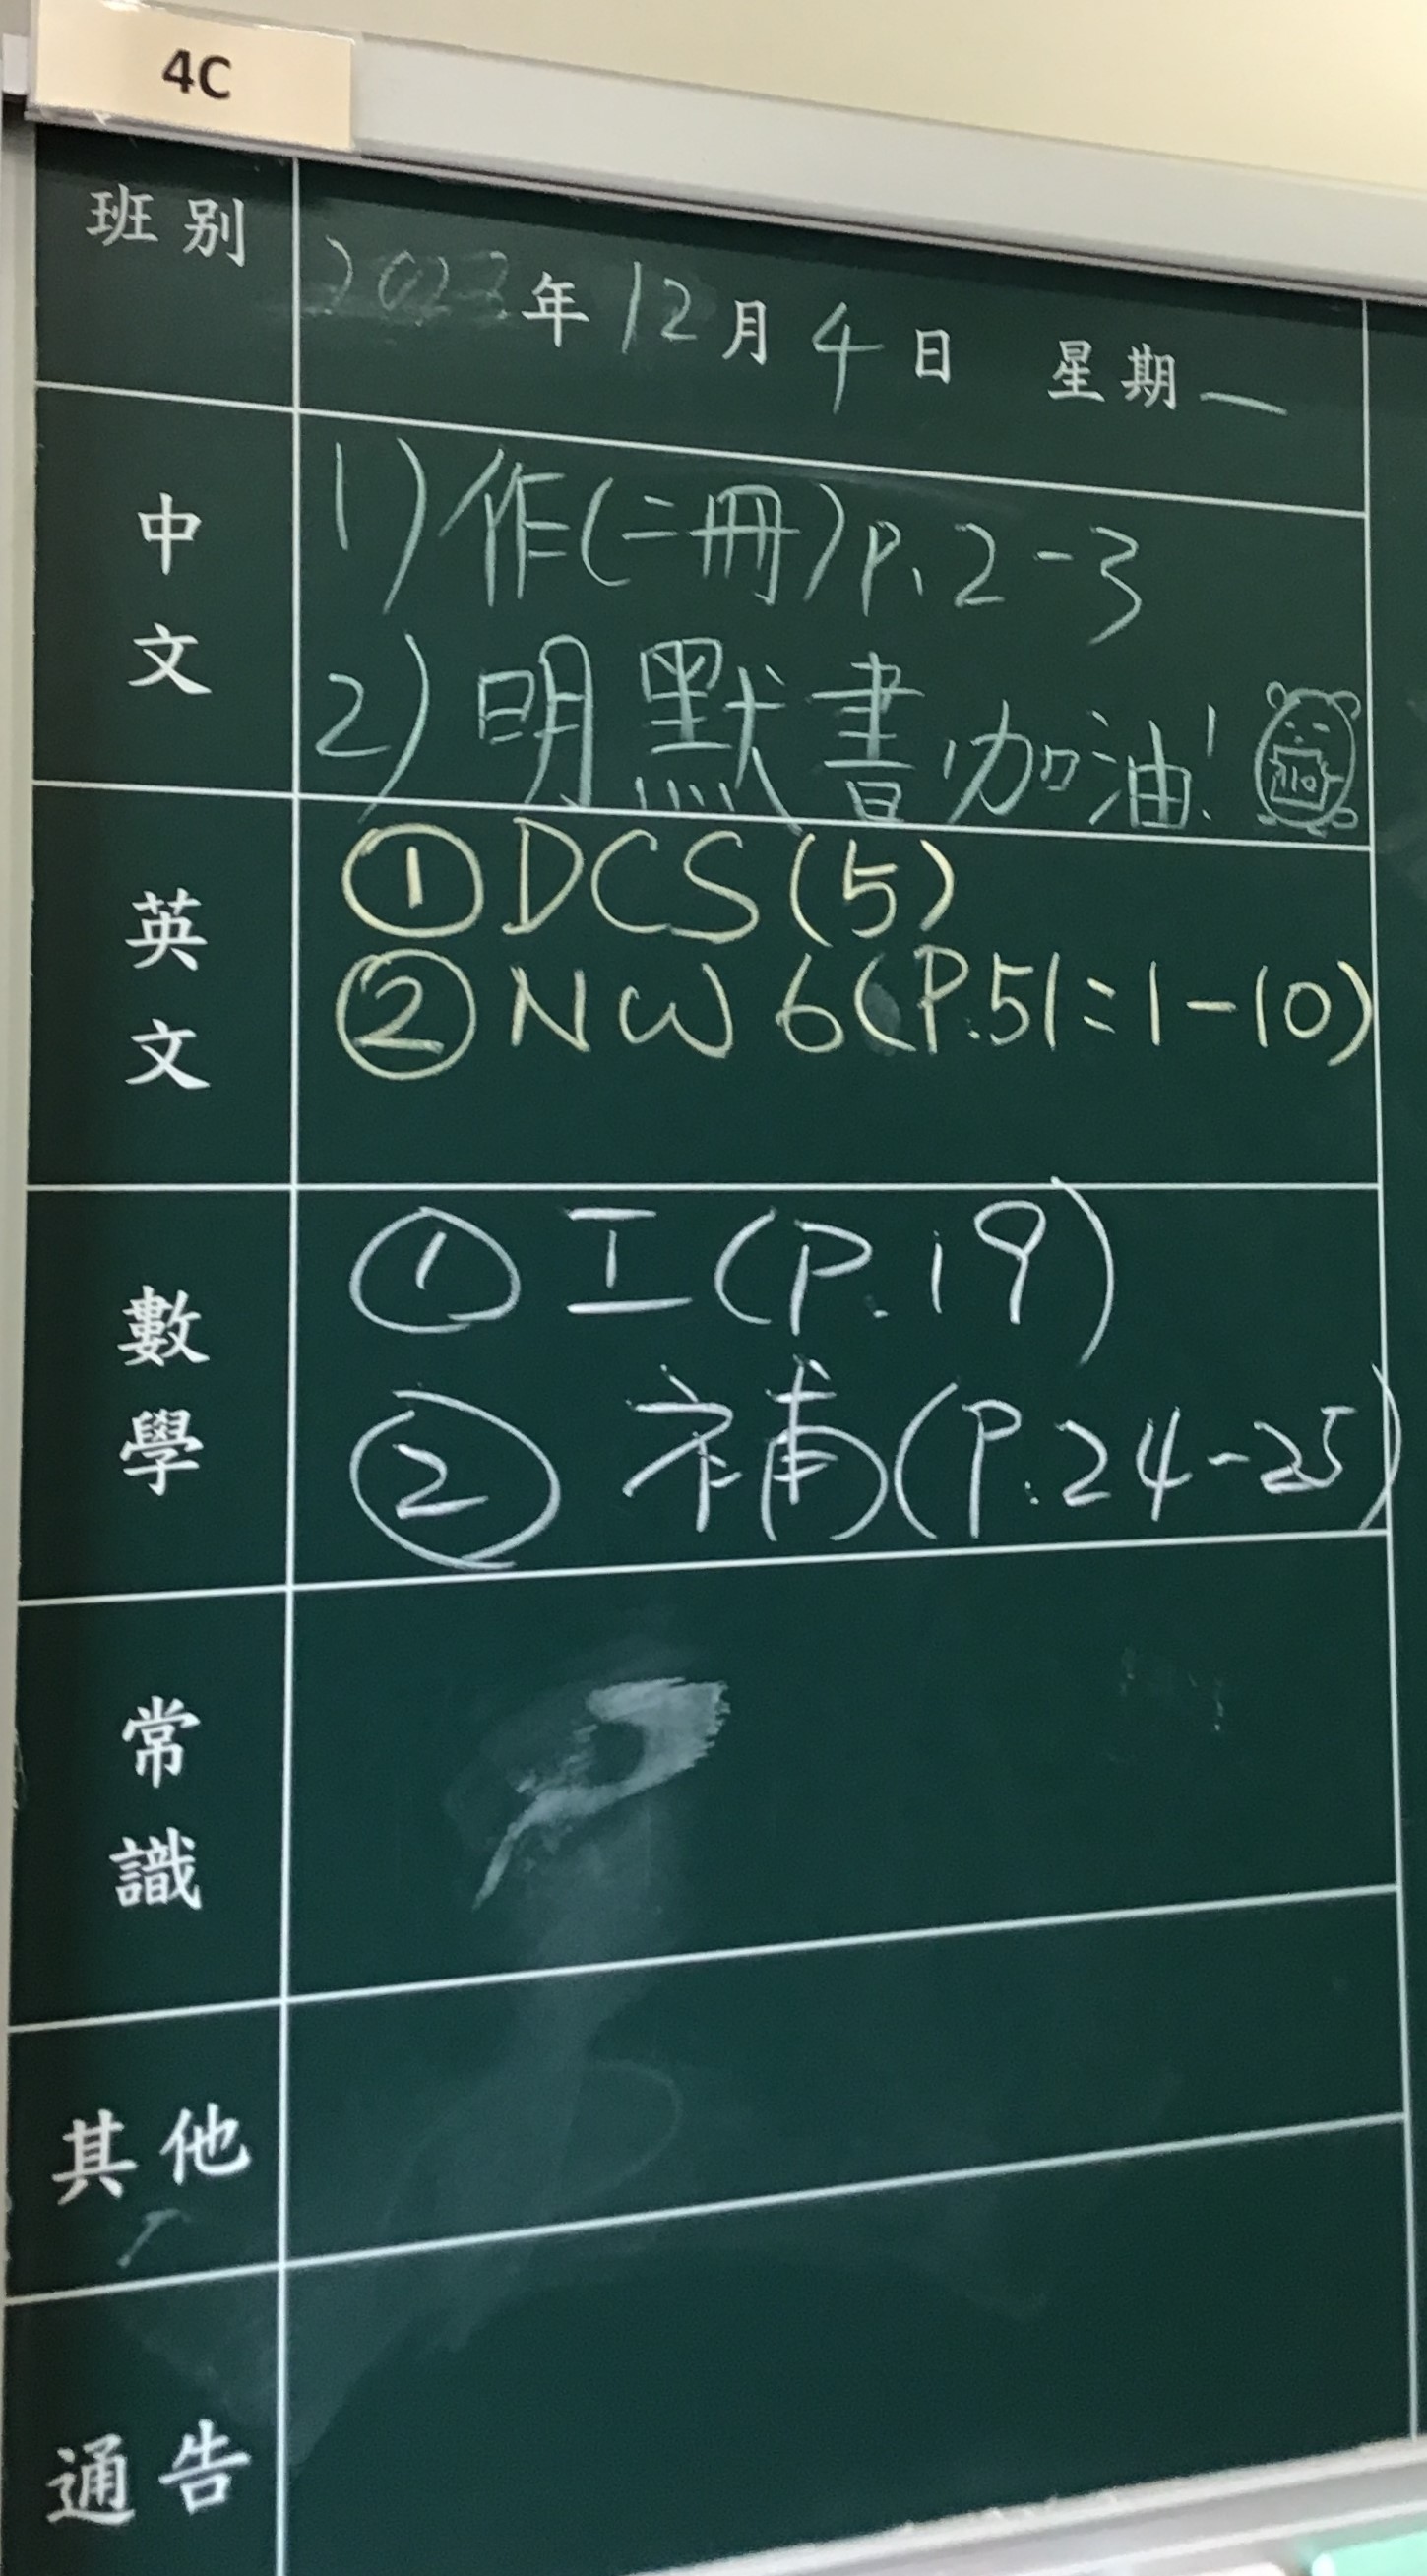 4C
班別
2023年12月4日 星期一
中文
1) 作(二冊)P.2-3
2) 明默書,加油!
110
英文
① DCS(5)
② NW 6(P.51:1-10)
數學
① 工(P.19)
② 補(P.24-25)
常識
其他
通告